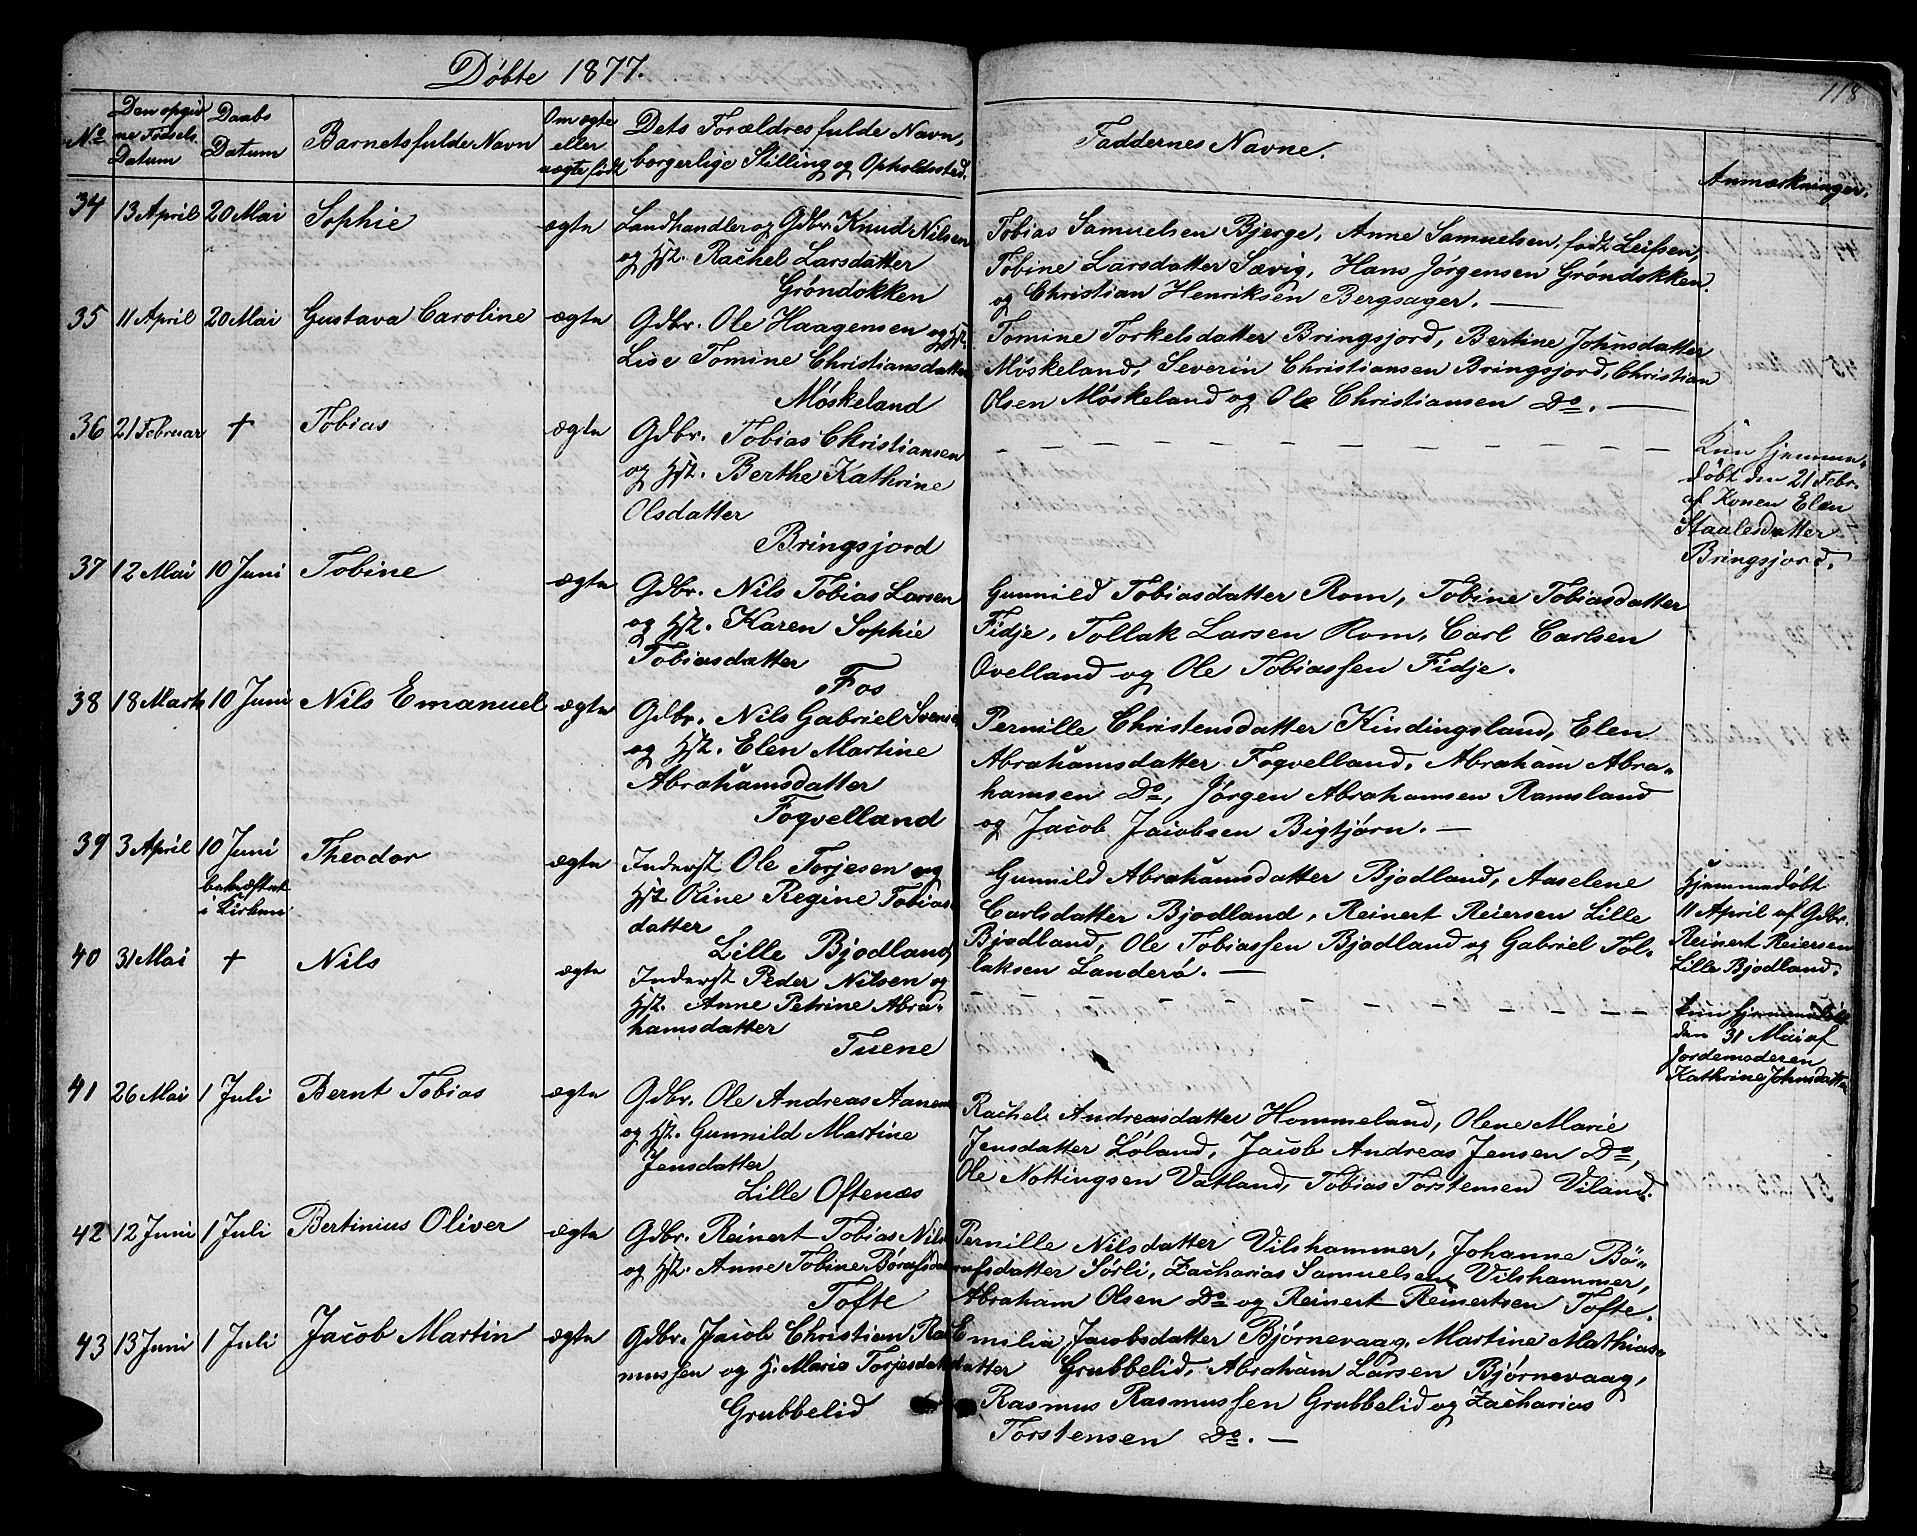 Døbte 1877.
118
No
Den opgivne Fødsels Datum
Daabs Datum
Barnets fulde Navn
Om ægte eller uægte født
Dets Forældres fulde Navn, borgerlige Stilling og Opholdssted.
Faddernes Navne.
Anmærkninger.
34 13 April 20 Mai Sophie ægte
Landhandler og Gdbr. Knud Nilsen
og Hst. Rachel Larsdatter
Grøndokken
Tobias Samuelsen Bjerge, Anne Samuelsen, født Leifsen,
Tobine Larsdatter Sævig, Hans Jørgensen Grøndokken.
og Christian Henriksen Bergsager. —
35 11 April 20 Mai Gustava Caroline ægte
Gdbr. Ole Haagensen og Hst.
Lise Tomine Christiansdatter
Møskeland
Tomine Torkelsdatter Bringsjord, Bertine Johnsdatter
Møskeland, Severin Christiansen Bringsjord, Christian
Olsen Møskeland og Ole Christiansen Do. —
36 21 Februar † Tobias ægte
Gdbr. Tobias Christiansen
og Hst. Berthe Kathrine
Olsdatter
Bringsjord
Kun hjemme-
døbt den 21 Febr.
af Konen Elen
Staalesdatter
Bringsjord.
37 12 Mai 10 Juni Tobine ægte
Gdbr. Nils Tobias Larsen
og Hst. Karen Sophie
Tobiasdatter
Fos
Gunnild Tobiasdatter Rom, Tobine Tobiasdatter
Fidje, Tollak Larsen Rom, Carl Carlsen
Øvelland og Ole Tobiassen Fidje.
38 18 Marts 10 Juni Nils Emanuel ægte
Gdbr. Nils Gabriel Svense
og Hst. Elen Martine
Abrahamsdatter
Foqvelland
Pernille Christensdatter Kindingsland, Elen
Abrahamsdatter Foqvelland, Abraham Abra-
hamsen Do, Jørgen Abrahamsen Ramsland
og Jacob Jacobsen Bigtjørn. —
39 3 April 10 Juni bekræftet i Kirken Theodor ægte
Inderst Ole Torjesen og
Hst Oline Regine Tobias-
datter
Lille Bjodland
Gunnild Abrahamsdatter Bjodland, Aaselene
Carlsdatter Bjodland, Reinert Reiersen Lille
Bjodland, Ole Tobiassen Bjodland og Gabriel Tol-
laksen Landerø. —
Hjemmedøbt
11 April af Gdbr.
Reinert Reiersen
Lille Bjodland.
40 31 Mai † Nils ægte
Inderst Peder Nilsen og
Hst. Anne Petrine Abra-
hamsdatter
Tuene
Kun hjemmedøbt
den 31 Mai af
Jordemoderen
Kathrine Johnsdatter
41 26 Mai 1 Juli Bernt Tobias ægte
Gdbr. Ole Andreas Aanen
og Hst. Gunnild Martine
Jensdatter
Lille Oftenæs
Rachel Andreasdatter Hommeland, Olene Marie
Jensdatter Løland, Jacob Andreas Jensen Do,
Ole Nottingsen Vatland, Tobias Torstensen Viland.
42 12 Juni 1 Juli Bertinius Oliver ægte
Gdbr. Reinert Tobias Nils
og Hst. Anne Tobine Børufsdat
Tofte
Pernille Nilsdatter Vilshammer, Johanne Bø-
rufsdatter Sørli, Zacharias Samuelsen Vilshammer,
Abraham Olsen Do og Reinert Reinertsen Tofte.
43 13 Juni 1 Juli Jacob Martin ægte
Gdbr. Jacob Christian Ras
mussen og H. Marie Torjesdat
Grubbelid
Emilia Jacobsdatter Bjørnevaag, Martine Mathias-
datter Grubbelid, Abraham Larsen Bjørnevaag,
Rasmus Rasmussen Grubbelid og Zacharias
Torstensen Do. —